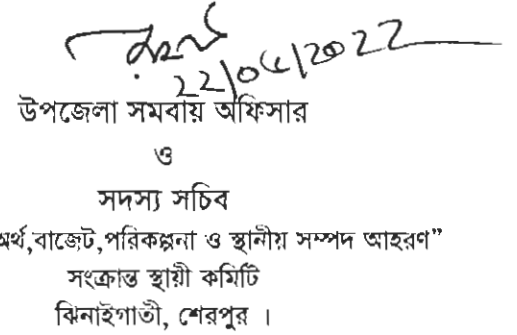 22/05/2022
উপজেলা সমবায় অফিসার
ও
সদস্য সচিব
অর্থ,বাজেট,পরিকল্পনা ও স্থানীয় সম্পদ আহরণ”
সংক্রান্ত স্থায়ী কমিটি
ঝিনাইগাতী, শেরপুর ।